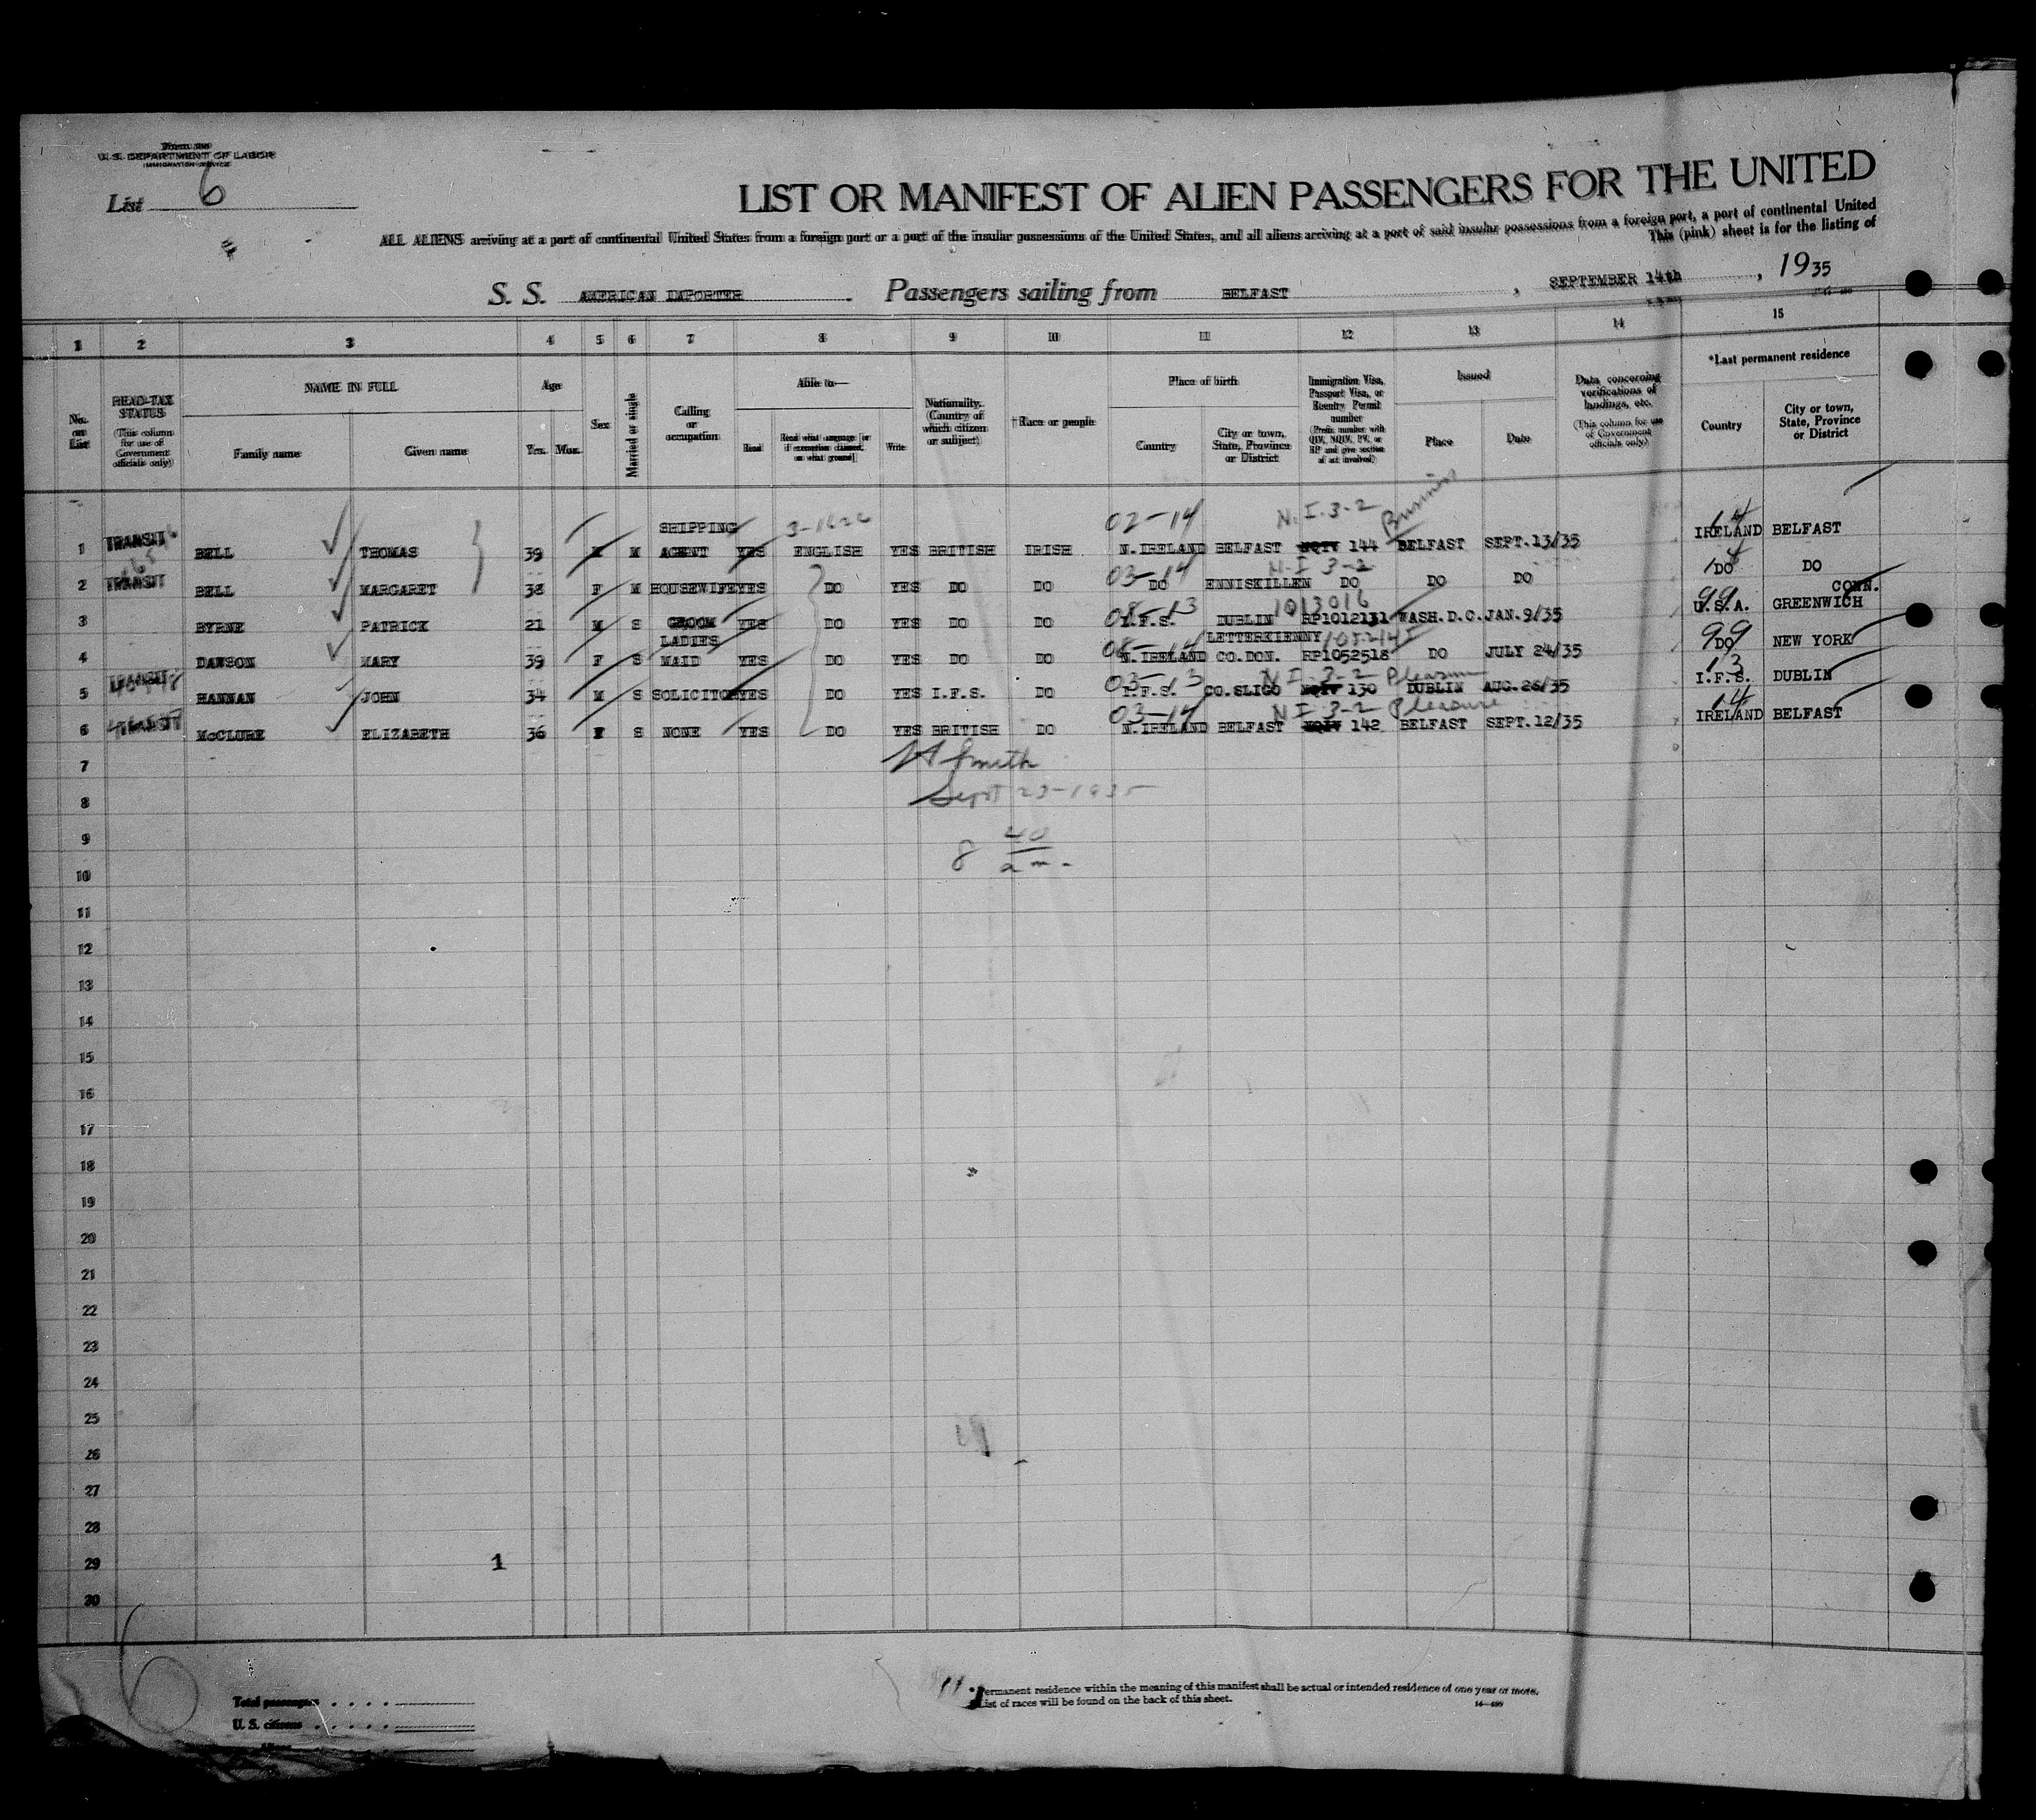 U. S. DEPARTMENT OF LABOR
IMMIGRATION SERVICE
List 6
LIST OR MANIFEST OF ALIEN PASSENGERS FOR THE UNITED
ALL ALIENS arriving at a port of continental United States from a foreign port or a port of the insular possessions of the United States, and all aliens arriving at a port of said insular possessions from a foreign port, a port of continental United
This (pink) sheet is for the listing of
S. S. AMERICAN IMPORTER . Passengers sailing from BELFAST , SEPTEMBER 14th , 1935
1 2 3 4 5 6 7 8 9 10 11 12 13 14 15
No. on List
HEAD-TAX STATUS (This column for use of Government officials only)
NAME IN FULL
Family name Given name
Age
Yrs. Mos.
Sex
Married or single
Calling or occupation
Able to—
Read
Read what language [or if exemption claimed, on what ground]
Write
Nationality. (Country of which citizen or subject)
†Race or people
Place of birth
Country
City or town, State, Province or District
Immigration Visa, Passport Visa, or Reentry Permit number (Prefix number with QIV, NQIV, PV, or RP and give section of act involved)
Issued
Place Date
Data concerning verifications of landings, etc. (This column for use of Government officials only)
*Last permanent residence
Country
City or town, State, Province or District
02-14 N.I.3-2 Business
1 TRANSIT BELL THOMAS 39 M M SHIPPING AGENT YES ENGLISH YES BRITISH IRISH N. IRELAND BELFAST NQIV 144 BELFAST SEPT.13/35 IRELAND 14 BELFAST
03-14 N-I 3-2
2 TRANSIT BELL MARGARET 38 F M HOUSEWIFE YES DO YES DO DO DO ENNISKILLEN DO DO DO DO DO
1013016
3 BYRNE PATRICK 21 M S GROOM YES DO YES DO DO I.F.S. DUBLIN RP1012131 WASH.D.C. JAN.9/35 U.S.A. 99 GREENWICH CONN.
4 DAWSON MARY 39 F S LADIES MAID YES DO YES DO DO N. IRELAND LETTERKIENNY CO.DON. RP1052518 DO JULY 24/35 DO 99 NEW YORK
N I 3-2 Pleasure
5 TRANSIT HANNAN JOHN 34 M S SOLICITOR YES DO YES I.F.S. DO I.F.S. CO.SLIGO NQIV 130 DUBLIN AUG.26/35 I.F.S. 13 DUBLIN
03-14 N I 3-2 Pleasure
6 TRANSIT McCLURE ELIZABETH 36 F S NONE YES DO YES BRITISH DO N. IRELAND BELFAST NQIV 142 BELFAST SEPT.12/35 IRELAND 14 BELFAST
7 Smith
8 Sept 23-1935
9 8 40
10 am-
11
12
13
14
15
16
17
18
19
20
21
22
23
24
25
26
27
28
29 1
30
6
Total passengers
U. S. citizens
Permanent residence within the meaning of this manifest shall be actual or intended residence of one year or more.
List of races will be found on the back of this sheet.